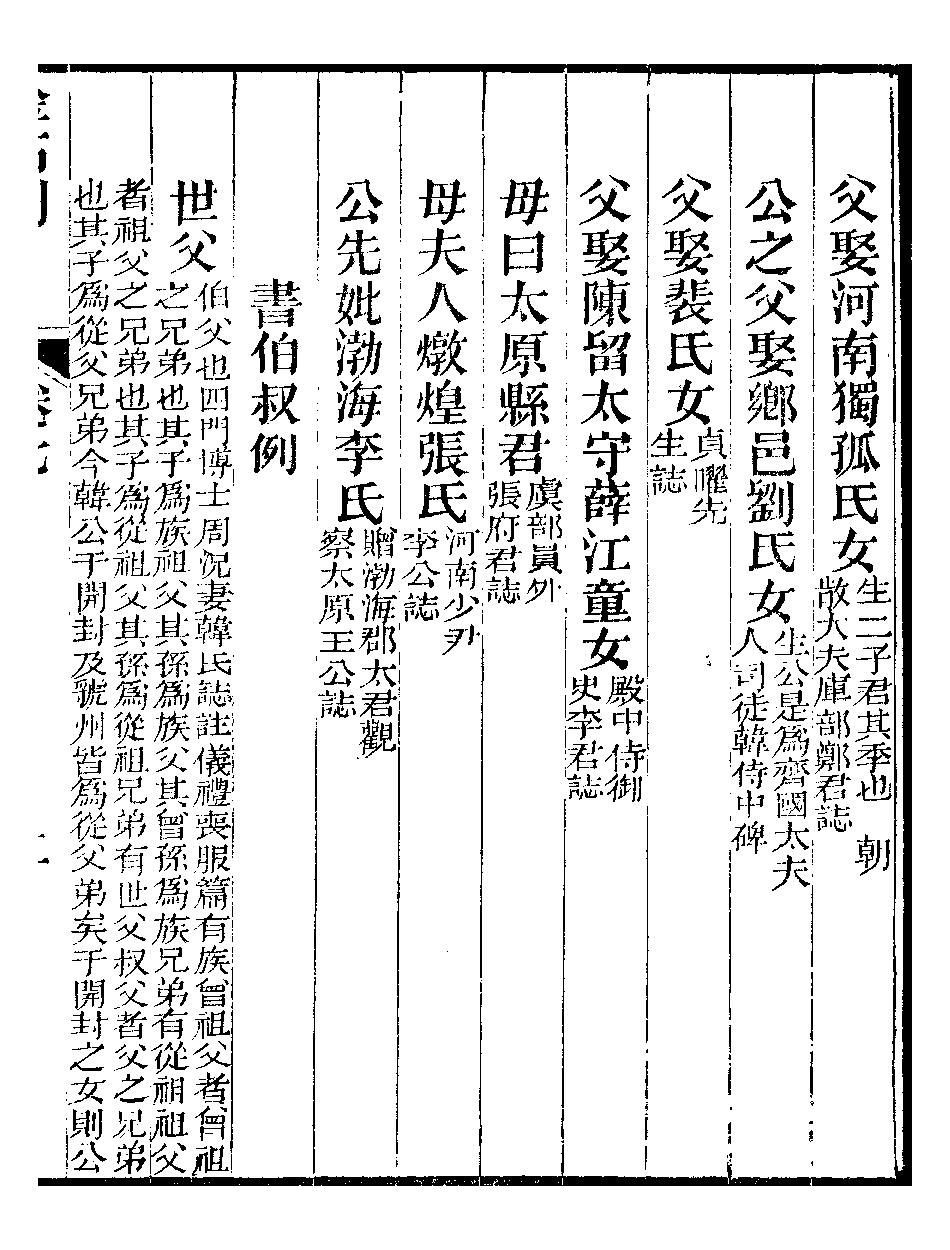 父娶河南獨孤氏女生二子君其季也 朝散大夫庫部鄭君誌
公之父娶鄉邑劉氏女生公是爲齊國太夫人司徒韓侍中碑
父娶裴氏女貞曜先生誌
父娶陳留太守薛江童女殿中侍御史李君誌
母曰太原縣君虞部員外張府君誌
母夫人燉煌張氏河南少尹李公誌
公先妣渤海李氏贈渤海郡太君觀察太原王公誌
書伯叔例
世父伯父也四門博士周況妻韓氏誌註儀禮喪服篇有族曾祖父者曾祖
之兄弟也其子爲族祖父其孫爲族父其曾孫爲族兄弟有從祖祖父
者祖父之兄弟也其子爲從祖父其孫爲從祖兄弟有世父叔父者父之兄弟
也其子爲從父兄弟今韓公于開封及虢州皆爲從父弟矣于開封之女則公
卷七